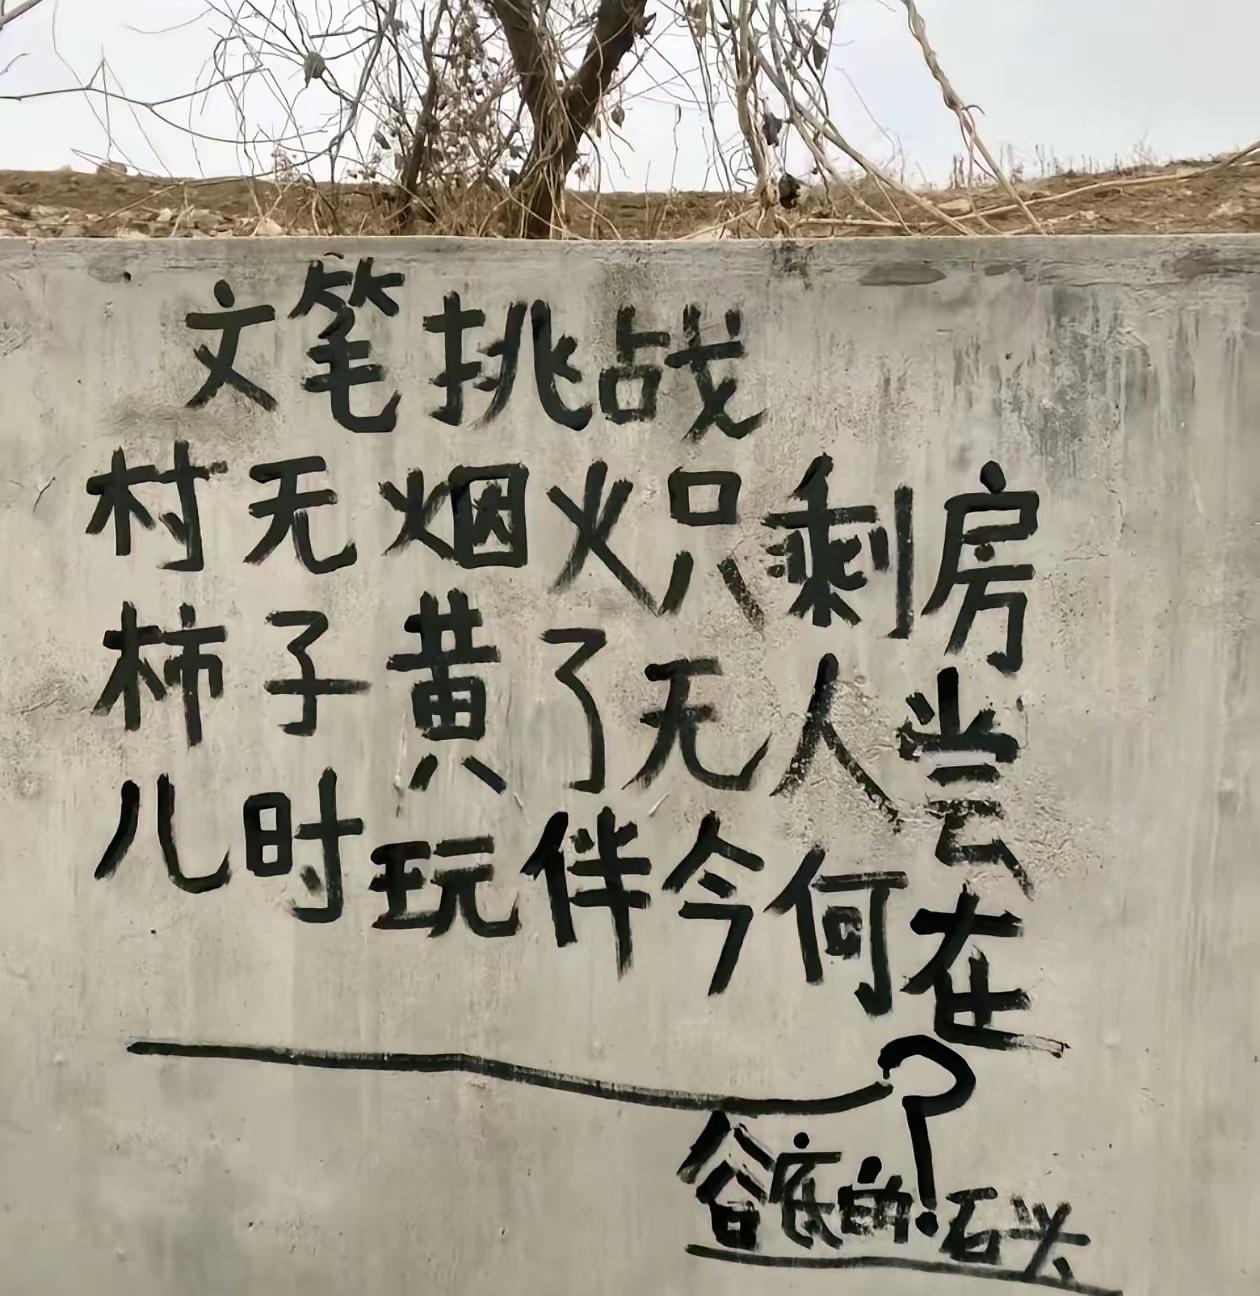 文笔挑战
村无烟火只剩房
柿子黄了无人尝
儿时玩伴今何在
————?
谷底的石头